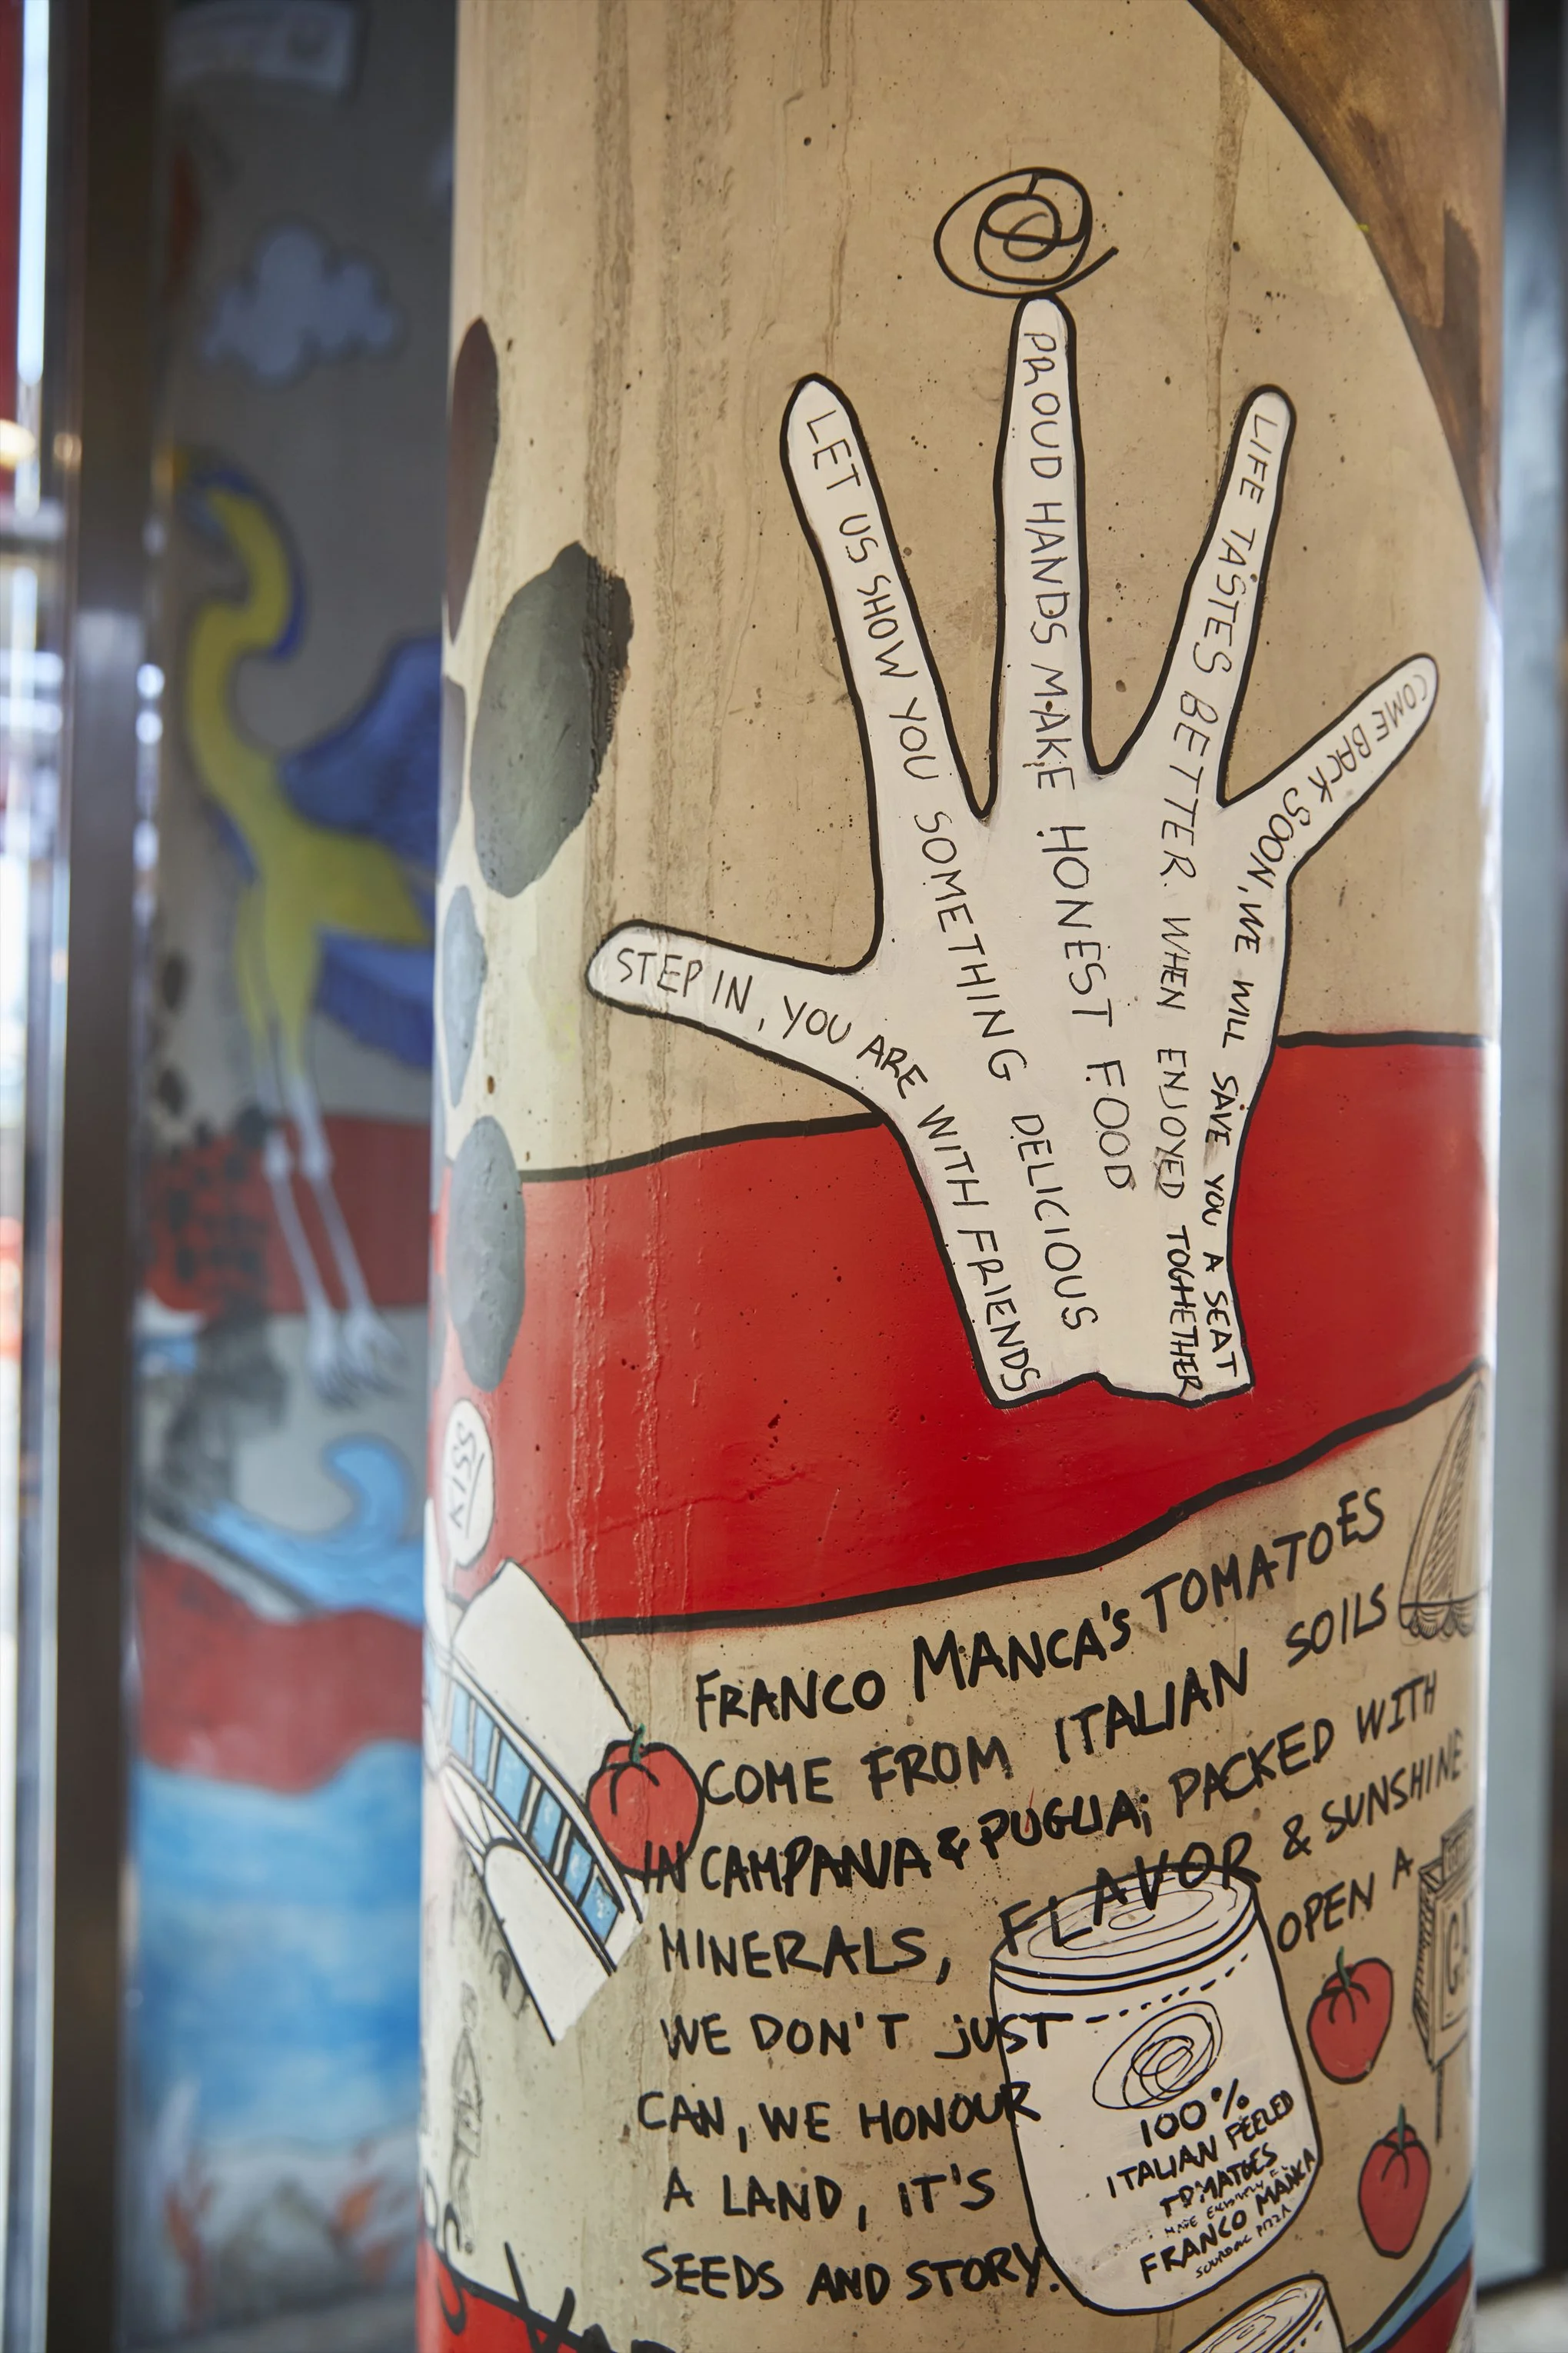 STEP IN, YOU ARE WITH FRIENDS
LET US SHOW YOU SOMETHING DELICIOUS
PROUD HANDS MAKE HONEST FOOD
LIFE TASTES BETTER WHEN ENJOYED TOGHETHER
COME BACK SOON, WE WILL SAVE YOU A SEAT
FRANCO MANCA'S TOMATOES
COME FROM ITALIAN SOILS
IN CAMPANIA & PUGLIA; PACKED WITH
MINERALS, FLAVOR & SUNSHINE
WE DON'T JUST OPEN A
CAN, WE HONOUR
A LAND, IT'S
SEEDS AND STORY.
100%
ITALIAN PEELED
TOMATOES
MADE EXCLUSIVELY
FRANCO MANCA
SOURDOUGH PIZZA